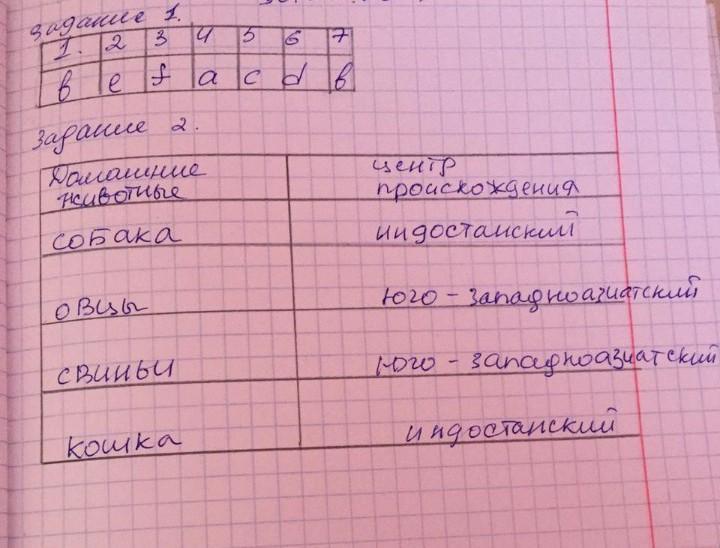 Задание 1.
1. 2 3 4 5 6 7
в e f a c d в
Задание 2.
Домашние животные центр происхождения
собака индостанский
овцы юго-западноазиатский
свиньи юго-западноазиатский
кошка индостанский